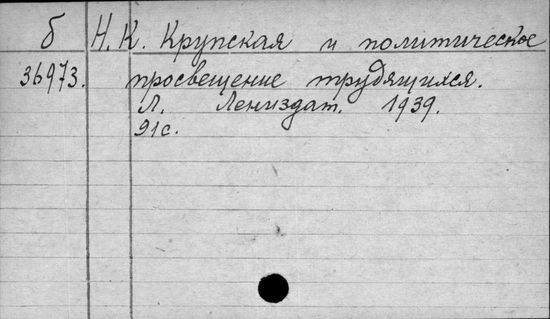 б Н.К. Крупская и политическое
36973. просвещение трудящихся.
Л. Лениздат. 1939.
91с.